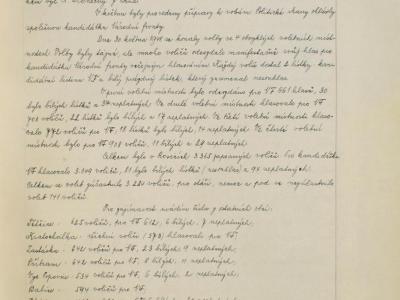 V květnu byly provedeny přípravy k volbám Politické strany sestavily
společnou kandidátku Národní fronty.
Dne 30. května 1948 se konaly volby ve 4 obvyklých volebních míst-
nostech. Volby byly tajné, ale mnoho voličů odevzdalo manifestačně svůj hlas pro
kandidátku Národní fronty veřejným hlasováním. Každý volič dostal 2 lístky: kan-
didátní listinu NF a bílý prázdný lístek, který znamenal nesouhlas.
V první volební místnosti bylo odevzdáno pro NF 661 hlasů, 30
bylo bílých lístků a 34 neplatných. Ve druhé volební místnosti hlasovalo pro NF
708 voličů, 22 lístků bylo bílých a 17 neplatných. Ve třetí volební místnosti hlaso-
valo 772 voličů pro NF, 18 lístků bylo bílých, 14 neplatných. Ve čtvrté volební
místnosti bylo pro NF 908 voličů, 11 bílých a 29 neplatných.
Celkem bylo v Rosicích 3.365 zapsaných voličů. Pro kandidátku
NF hlasovalo 3.049 voličů, 81 bylo bílých lístků / nesouhlas / a 94 neplatných.
Celkem se voleb zúčastnilo 3.224 voličů, pro stáří, nemoc a pod. se nezúčastnilo
voleb 141 voličů.
Pro zajímavost uvádím čísla z ostatních obcí:
625 voličů, pro NF 612, 6 bílých, 7 neplatných.
Kratochvilka - všichni voliči (573) hlasovali pro NF.
Zastávka - 642 voličů pro NF, 23 bílých 9 neplatných.
Příbram - 642 voličů pro NF, 8 bílých, 11 neplatných.
534 voličů pro NF, 5 bílých, 2 neplatných.
Babice - 594 voličů pro NF.